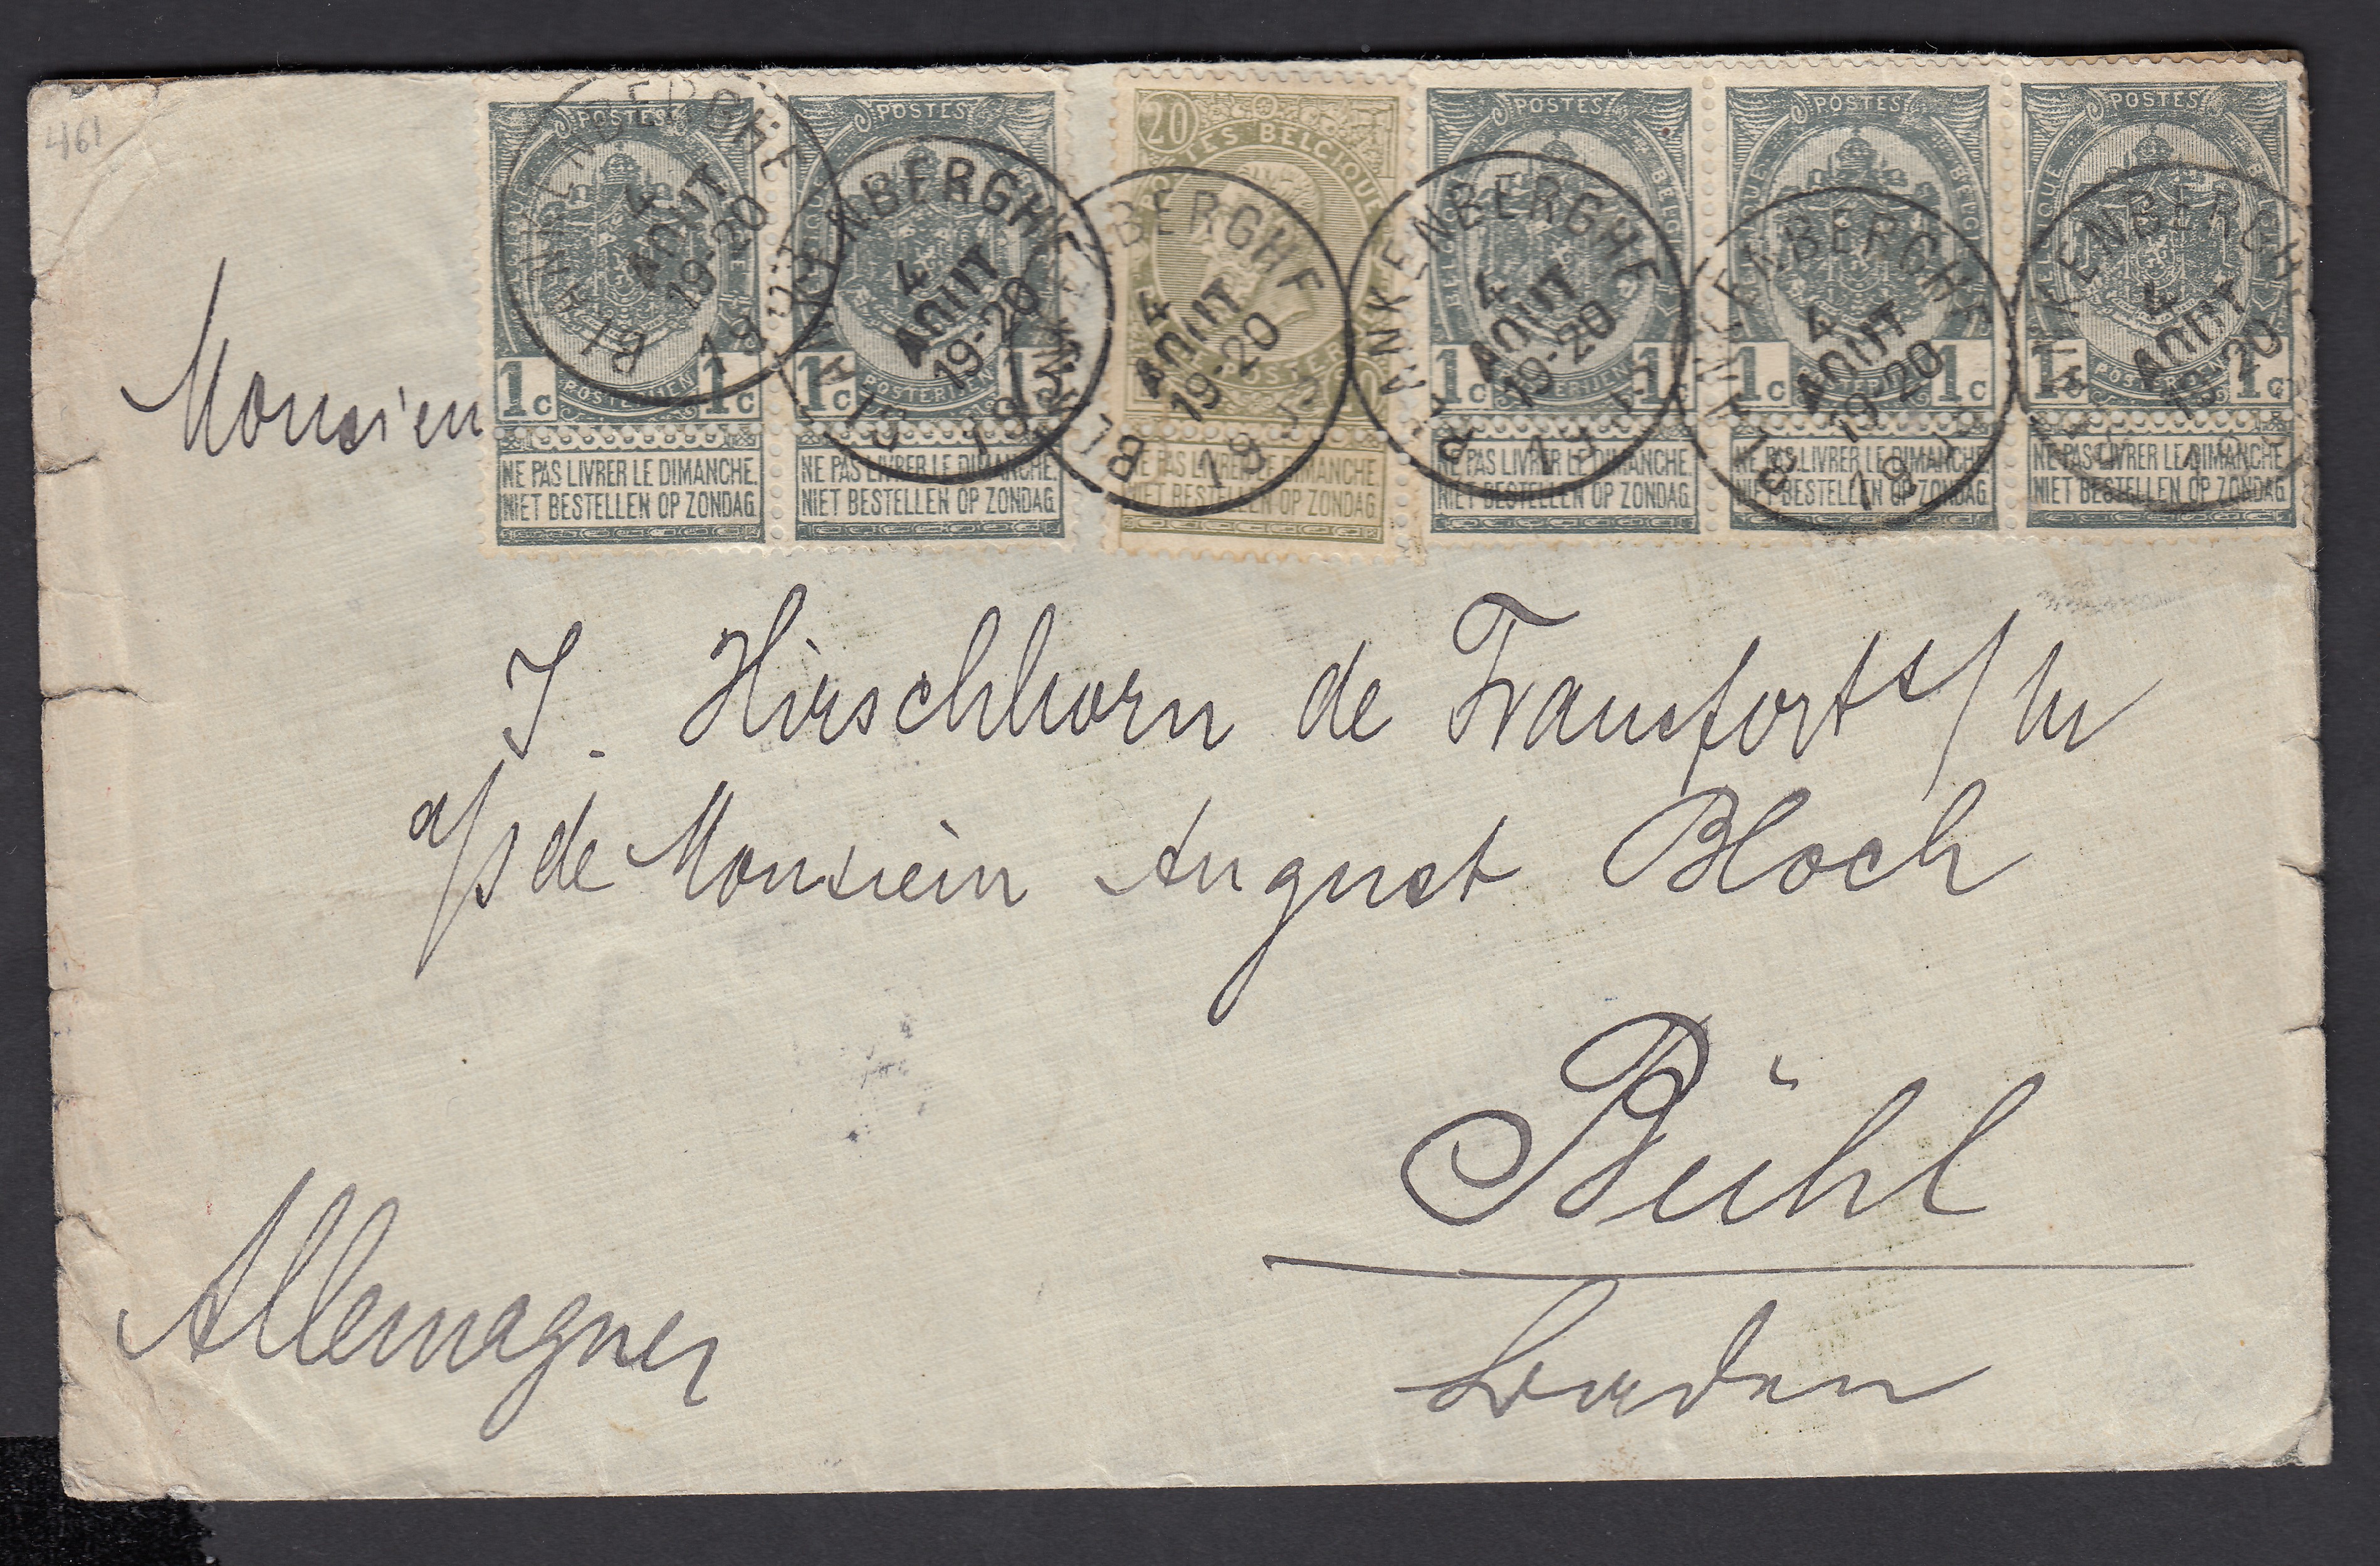 461
POSTES POSTES 20 POSTES BELGIQUE POSTES POSTES POSTES
BLANKENBERGHE BLANKENBERGHE BLANKENBERGHE BLANKENBERGHE BLANKENBERGHE BLANKENBERGHE
4 4 4 4 4 4
AOUT AOUT AOUT AOUT AOUT AOUT
19-20 19-20 19-20 19-20 19-20 19-20
1c 1c 1c 1c 1c 1c 1c 1c 1c 1c
POSTERIJEN POSTERIJEN POSTERIJEN POSTERIJEN POSTERIJEN
NE PAS LIVRER LE DIMANCHE. NE PAS LIVRER LE DIMANCHE. NE PAS LIVRER LE DIMANCHE. NE PAS LIVRER LE DIMANCHE. NE PAS LIVRER LE DIMANCHE. NE PAS LIVRER LE DIMANCHE.
NIET BESTELLEN OP ZONDAG. NIET BESTELLEN OP ZONDAG. NIET BESTELLEN OP ZONDAG. NIET BESTELLEN OP ZONDAG. NIET BESTELLEN OP ZONDAG. NIET BESTELLEN OP ZONDAG.
Monsieur
J. Hirschhorn de Francfort s/M
a/s de Monsieur August Bloch
Bühl
Baden
Allemagne